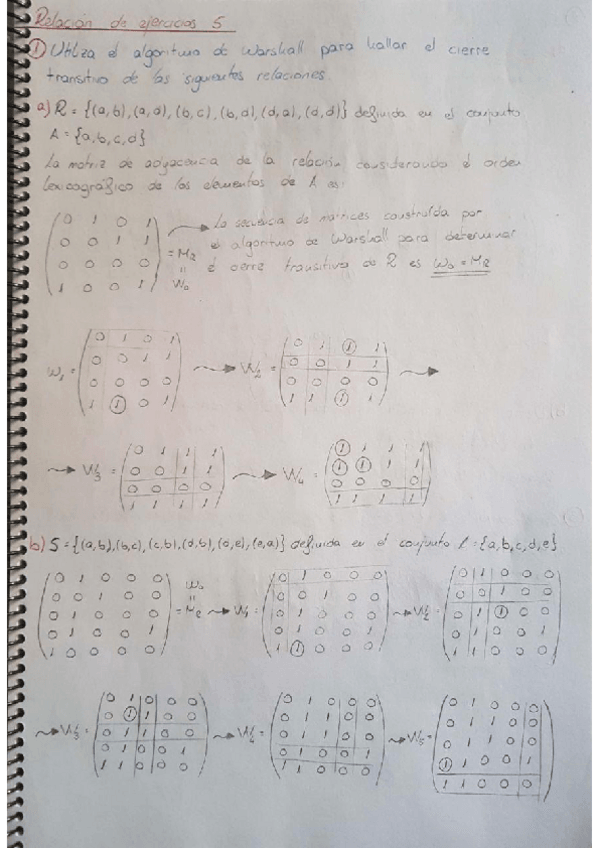 Relación de ejercicios 5
① Utiliza el algoritmo de Warshall para hallar el cierre
transitivo de las siguientes relaciones.
a) R = {(a,b), (a,d), (b,c), (b,d), (d,a), (d,d)} definida en el conjunto
A = {a,b,c,d}
La matriz de adyacencia de la relación, considerando el orden
lexicográfico de los elementos de A es:
0 1 0 1
0 0 1 1
0 0 0 0
1 0 0 1
= M_R
=
W₀
La secuencia de matrices construida por
el algoritmo de Warshall para determinar
el cierre transitivo de R es W₀ = M_R
W₁ =
0 1 0 1
0 0 1 1
0 0 0 0
1 ① 0 1
W₂ =
0 1 ① 1
0 0 1 1
0 0 0 0
1 1 ① 1
W₃ =
0 1 1 1
0 0 1 1
0 0 0 0
1 1 1 1
W₄ =
① 1 1 1
① ① 1 1
0 0 0 0
1 1 1 1
b) S = {(a,b), (b,c), (c,b), (d,b), (d,e), (e,a)} definida en el conjunto = {a,b,c,d,e}
0 1 0 0 0
0 0 1 0 0
0 1 0 0 0
0 1 0 0 1
1 0 0 0 0
W₀
=
= M_R
W₁ =
0 1 0 0 0
0 0 1 0 0
0 1 0 0 0
0 1 0 0 1
1 ① 0 0 0
W₂ =
0 1 0 0
0 0 1 0 0
0 1 ① 0 0
0 1 0 1
1 1 0 0
W₃ =
0 1 0 0 0
0 ① 1 0 0
0 1 1 0 0
0 1 0 0 1
1 1 0 0 0
W₄ =
0 1 0 0
0 1 1 0 0
0 1 1 0 0
0 1 0 0 1
1 1 0 0 0
W₅ =
0 1 0 0 0
0 1 1 0 0
0 1 1 0 0
① 1 0 0 1
1 1 0 0 0